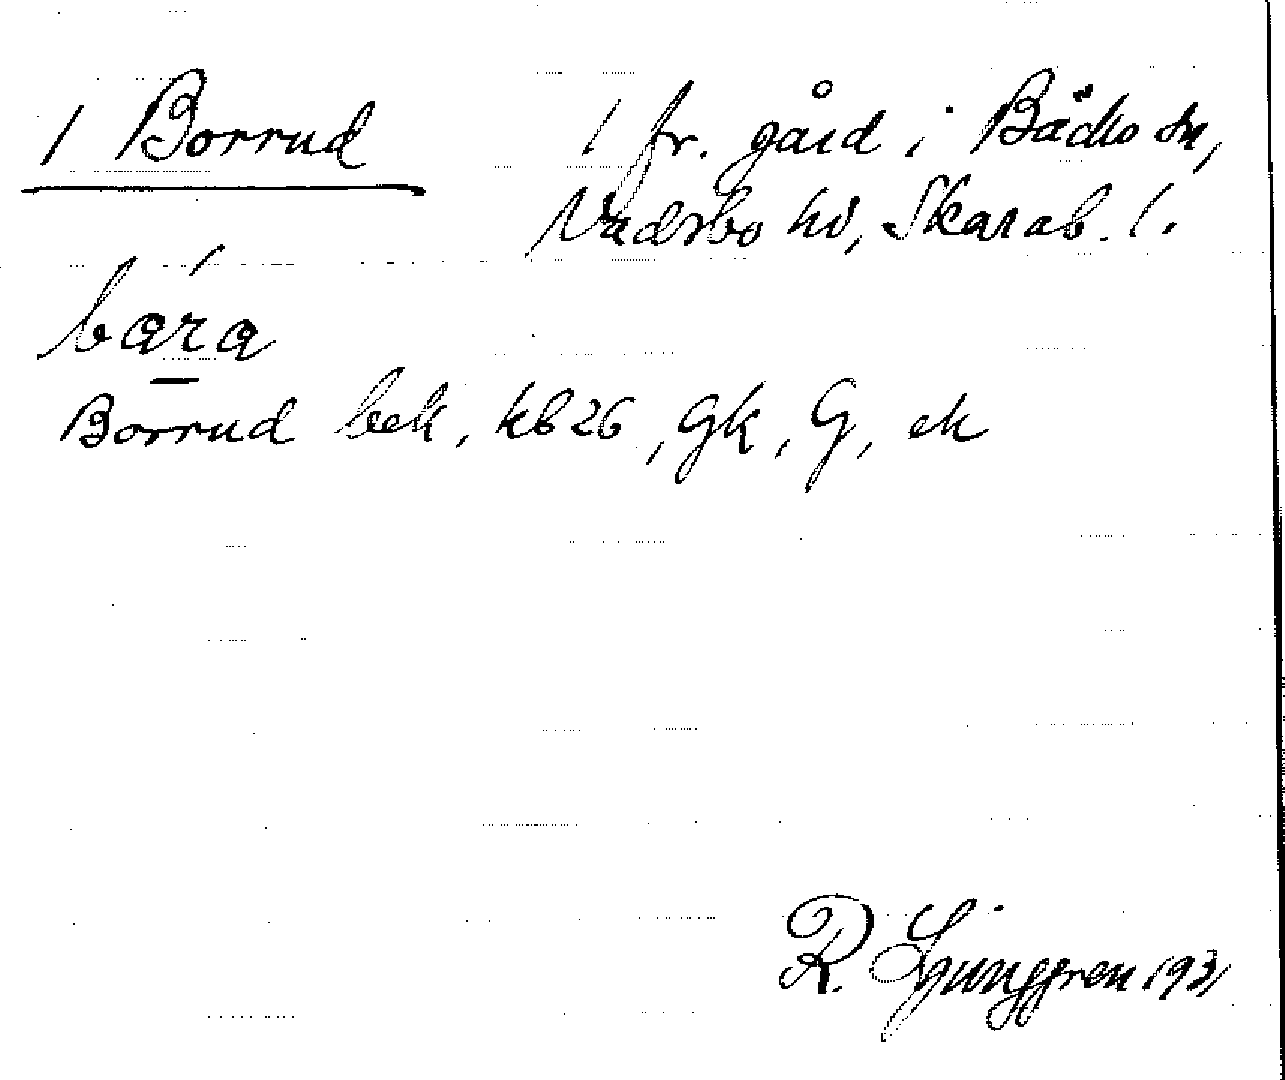 1 Borrud 1 fr. gård i Bäcks sn,
Vadsbo hd, Skarab. l.
bára
Borrud bek, kb 26, Gk, G, ek
R. Ljunggren 1931